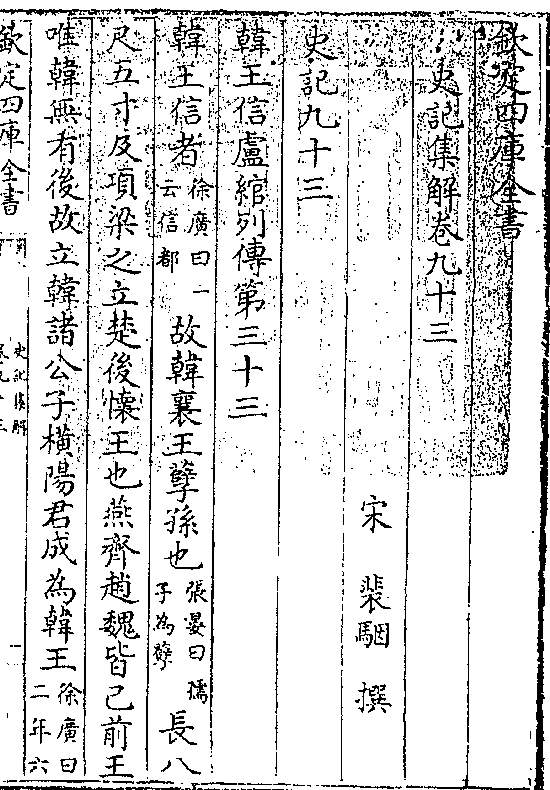 欽定四庫全書
史記集解卷九十三
宋 裴駰 撰
史記九十三
韓王信盧綰列傳第三十三
韓王信者徐廣曰一云信都故韓襄王孽孫也張晏曰孺子為孽長八
尺五寸及項梁之立楚後懐王也燕齊趙魏皆已前王
唯韓無有後故立韓諸公子橫陽君成為韓王徐廣曰二年六
欽定四庫全書
史記集解
卷九十三
一